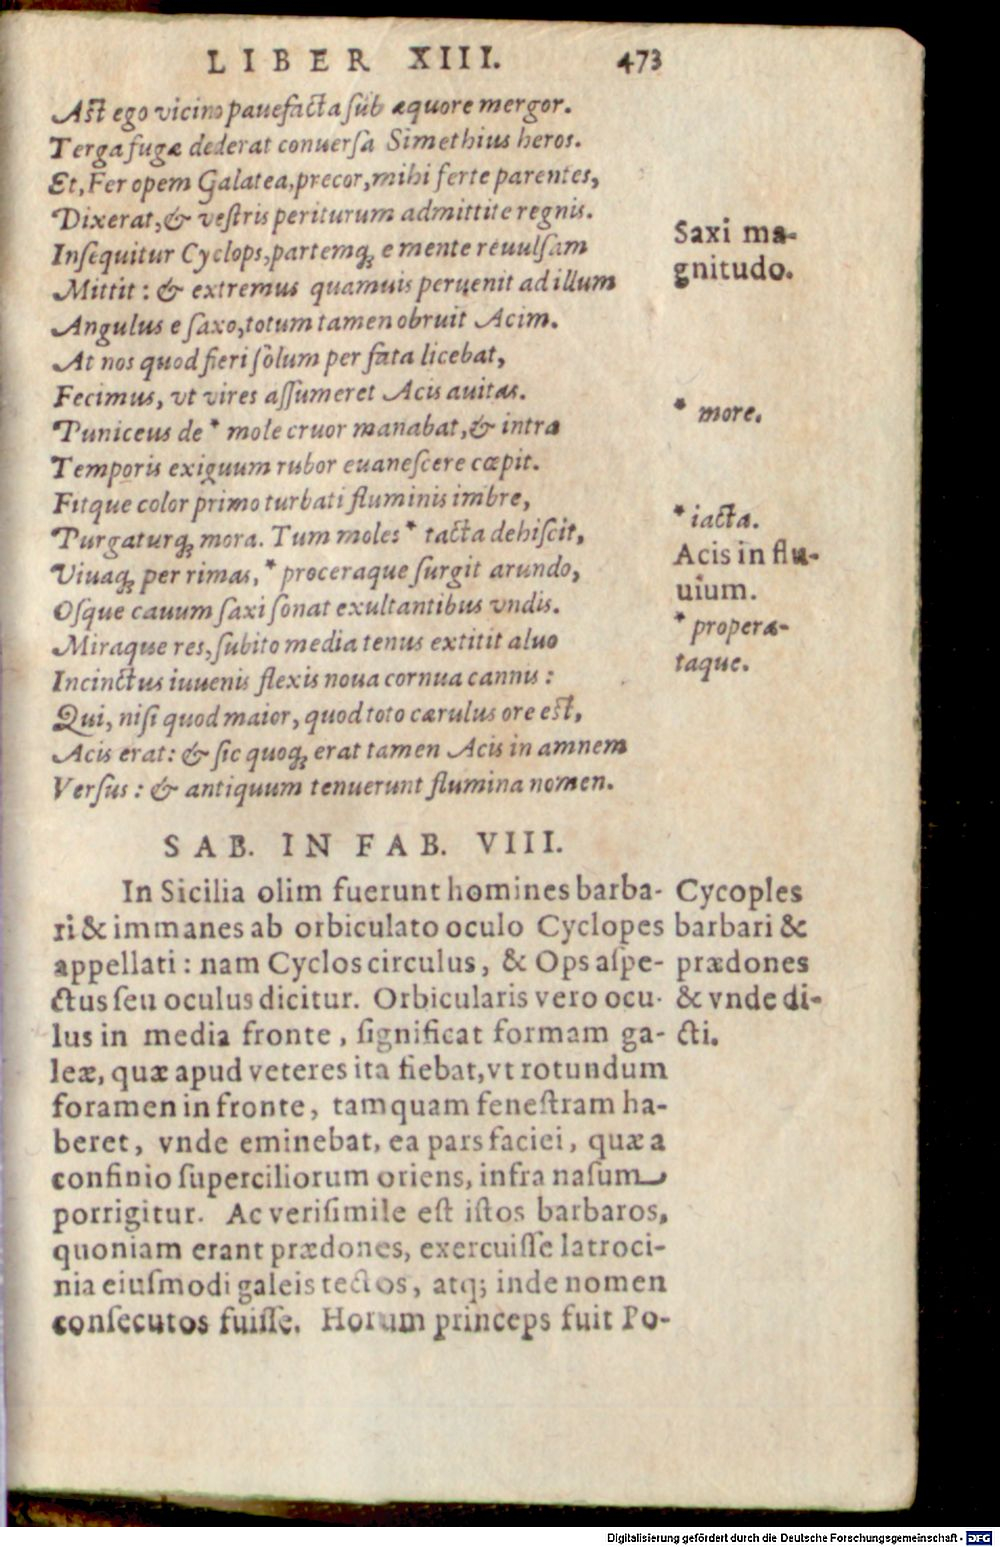 LIBER XIII. 473
Ast ego vicino pauefacta sub æquore mergor.
Terga fugæ dederat conuersa Simethius heros.
Et, Fer opem Galatea, precor, mihi ferte parentes,
Dixerat, & vestris periturum admittite regnis.
Insequitur Cyclops, partemq; e mente reuulsam
Mittit: & extremus quamuis peruenit ad illum
Angulus e saxo, totum tamen obruit Acim.
At nos quod fieri solum per fata licebat,
Fecimus, vt vires assumeret Acis auitas.
Puniceus de * mole cruor manabat, & intra
Temporis exiguum rubor euanescere cœpit.
Fitque color primo turbati fluminis imbre,
Purgaturq; mora. Tum moles * tacta dehiscit,
Viuaq; per rimas, * proceraque surgit arundo,
Osque cauum saxi sonat exultantibus vndis.
Miraque res, subito media tenus extitit aluo
Incinctus iuuenis flexis noua cornua cannis:
Qui, nisi quod maior, quod toto cærulus ore est,
Acis erat: & sic quoq; erat tamen Acis in amnem
Versus: & antiquum tenuerunt flumina nomen.
Saxi ma-
gnitudo.
* more.
* iacta.
Acis in flu-
uium.
* propera-
taque.
SAB. IN FAB. VIII.
In Sicilia olim fuerunt homines barba-
ri & immanes ab orbiculato oculo Cyclopes
appellati: nam Cyclos circulus, & Ops aspe-
ctus seu oculus dicitur. Orbicularis vero ocu-
lus in media fronte, significat formam ga-
leæ, quæ apud veteres ita fiebat, vt rotundum
foramen in fronte, tamquam fenestram ha-
beret, vnde eminebat, ea pars faciei, quæ a
confinio superciliorum oriens, infra nasum
porrigitur. Ac verisimile est istos barbaros,
quoniam erant prædones, exercuisse latroci-
nia eiusmodi galeis tectos, atq; inde nomen
consecutos fuisse. Horum princeps fuit Po-
Cycoples
barbari &
prædones
& vnde di-
cti.
Digitalisierung gefördert durch die Deutsche Forschungsgemeinschaft - DFG